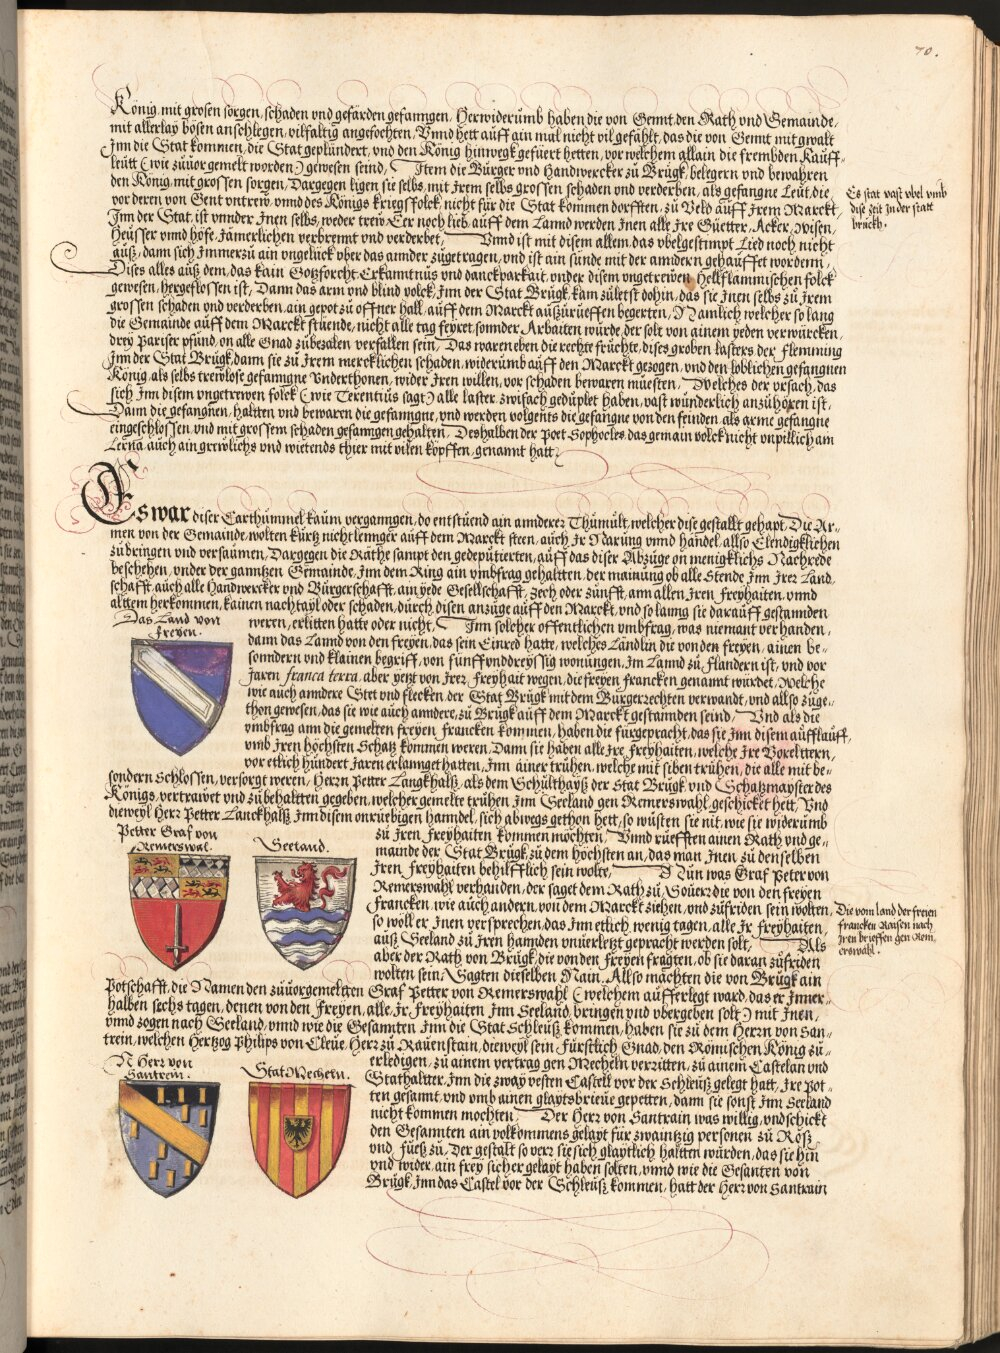 70.
König, mit grosen sorgen, schaden vnd gefärden gefanngen, Herwiderumb haben die von Gennt, den Rath vnd Gemainde,
mit allerlay bösen anschlegen, vilfaltig angefochten, Vnnd hett auff ain mal nicht vil gefählt, das die von Gennt mit gwalt
Inn die Stat kommen, die Stat geplündert, vnd den König hinwegk gefüert hetten, vor welchem allain die frembden Kauff-
leütt (wie züuor gemelt worden) gewesen seind, Item die Bürger vnd Handwercker zů Brügk, belegern vnd bewahren
den König, mit grossen sorgen, Dargegen ligen sie selbs, mit Irem selbs grossen schaden vnd verderben, als gefangne Leüt, die
vor deren von Gent vntrew, vnnd des Königs kriegsfolck, nicht für die Stat kommen dorfften, zů Veld auff Irem Marckt
Inn der Stat, ist vnnder Inen selbs, weder trew Eer noch lieb, auff dem Lannd werden Inen alle Ire Güetter, Acker, Wisen,
Heüsser vnnd höfe, Jämerlichen verbrennt vnd verderbet, Vnnd ist mit disem allem, das vbelgestimpt Lied noch nicht
auß, dann sich Immerzů ain vngelück vber das annder zůgetragen, vnd ist ain sünde mit der anndern gehäuffet worden,
Dises alles auß dem, das kain Gotzforcht, Erkanntnus vnd danckparkait, vnder disem vngetrewen Hellflammischen folck
gewesen, hergeflossen ist, Dann das arm vnd blind volck, Inn der Stat Brügk, kam zůletst dohin, das sie Inen selbs zů Irem
grossen schaden vnd verderben, ain gepot zů offner hall, auff dem Marckt außzůrüeffen begerten, Nämlich welcher so lang
die Gemainde auff dem Marckt stüende, nicht alle tag feyret, sonnder Arbaiten würde, der solt von ainem yeden verwürcken,
drey Pariser pfund, on alle Gnad zůbezalen verfallen sein, Das waren eben die rechte früchte, dises groben lasters der Flemming
Inn der Stat Brügk, dann sie zů Irem mercklichen schaden, widerumb auff den Marckt gezogen, vnd den löblichen gefangnen
König, als selbs trewlose gefanngne Vnderthonen, wider Iren willen, vor schaden bewaren müesten, Welches der vrsach, das
sich Inn disem vngetrewen folck (wie Terentius sagt) alle laster, zwifach gedüplet haben, vast wunderlich anzůhören ist,
Dann die gefangnen, haltten vnd bewaren die gefanngne, vnd werden volgents die gefangne von den feinden, als arme gefangne
eingeschlossen, vnd mit grossem schaden gefanngen gehalten, Deshalben der Poet Sophocles, das gemain volck nicht vnpillich am
Lerna, auch ain grewlichs vnd wietends thier mit vilen köpffen, genannt hatt.
Es stat vast vbel vmb
dise zeit in der statt
brückh.
Es war diser Carthümmel kaum verganngen, do entstüend ain annderer Thümült, welcher dise gestallt gehapt, Die Ar-
men von der Gemainde, wolten kurtz nicht lennger auff dem Marckt steen, auch Ir Narung vnnd händel, allso Elendigklichen
zůdringen vnd versaümen, Dargegen die Räthe sampt den gedeputierten, auff das diser Abzüge on menigklichs Nachrede
beschehen, vnder der ganntzen Gemainde, Inn dem Ring ain vmbfrag gehaltten, der mainung ob alle Stende Inn Irer Land-
schafft, auch alle Handwercker vnd Bürgerschafft, ain yede Gesellschafft, zech oder zünfft, ann allen Iren Freyhaiten, vnnd
alttem herkommen, kainen nachtayl oder schaden, durch disen anzüge auff den Marckt, vnd so lanng sie darauff gestannden
weren, erlitten hatte oder nicht, Inn solcher offentlichen vmbfrag, was niemant verhanden,
Das Land von
Freyen.
dann das Lannd von den freyen, das sein Einred hatte, welches Ländlin die von den freyen, ainen be-
sonndern vnd klainen begriff, von fünff vnddreyssig wonüngen, Im Lannd zů Flandern ist, vnd vor
Jaren franca terra, aber yetzt von Irer Freyhait wegen, die freyen Francken genannt würdet, Welche
wie auch anndere Stet vnd flecken, der Stat Brügk mit dem Bürgerrechten verwandt, vnd allso zůge-
thon gewesen, das sie wie auch anndere, zů Brügk auff dem Marckt gestannden seind, Vnd als die
vmbfrag ann die gemelten freyen Francken kommen, haben die fürgepracht, das sie Inn disem aufflauff,
vmb Iren höchsten Schatz kommen weren, Dann sie haben alle Ire Freyhaiten, welche Ire Vorelttern,
vor etlich hündert Jaren erlannget hatten, Inn ainer trühen, welche mit siben trühen, die alle mit be-
sondern Schlossen, versorgt weren, Herrn Petter Langkhalß, als dem Schülthayß der Stat Brügk, vnd Schatzmayster des
Königs, vertrawet vnd zůbehaltten gegeben, welcher gemelte trühen, Inn Seeland gen Remerswahl geschicket hett, Vnd
dieweyl Herr Petter Lanckhalß Inn disem onrüebigen hanndel, sich abwegs gethon hett, so wüsten sie nit, wie sie widerümb
zů Iren Freyhaiten kommen möchten, Vnnd rüefften ainen Rath vnd ge-
Petter Graf von
Remerswal.
Seeland.
mainde der Stat Brügk, zů dem höchsten an, das man Inen zů denselben
Iren Freyhaiten behilfflich sein wolte, Nün was Graf Peter von
Remerswahl verhanden, der saget dem Rath zů, Souerr die von den freyen
Francken, wie auch andern, von dem Marckt ziehen, vnd zůfriden sein wolten,
so woll er Inen versprechen, das Inn etlich wenig tagen, alle Ir Freyhaiten,
auß Seeland zů Iren hannden vnuerletzt gepracht werden solt, Als
aber der Rath von Brügk, die von den freyen fragten, ob sie daran zůfriden
wolten sein, Sagten dieselben Nain, Allso machten die von Brügk ain
Die vom land der freien
francken Raisen nach
Iren brieffen gen Rem,
erswahl.
Potschafft, die Namen den züuorgemeltten Graf Petter von Remerswahl (welchem aufferlegt ward, das er Inner-
halben sechs tagen, denen von den Freyen, alle Ir Freyhaiten Inn Seeland, bringen vnd vbergeben solt) mit Inen,
vnnd zogen nach Seeland, vnnd wie die Gesannten Inn die Stat Schleüß kommen, haben sie zů dem Herrn von San-
trein, welchen Hertzog Philips von Cleüe, Herr zů Rauenstain, dieweyl sein Fürstlich Gnad, den Römischen König zů-
erledigen, zů ainem vertrag gen Mecheln verritten, zů ainem Castelan vnd
N Herr von
Santrein.
Stat Mecheln.
Stathaltter, Inn die zway vesten Castell vor der Schleüß gelegt hatt, Ire Pot-
ten gesannt, vnd vmb ainen glaytsbrieue gepetten, dann sie sonst Inn Seeland
nicht kommen mochten, Der Herr von Santrain was willig, vnd schickt
den Gesannten ain volkommens gelayt, für zwaintzig personen zů Röß
vnd Füeß zů, Der gestalt so verr sie sich glaytlich haltten würden, das sie hin
vnd wider, ain frey sicher gelayt haben solten, vnnd wie die Gesanten von
Brügk, Inn das Castel vor der Schleüß kommen, hatt der Herr von Santrain